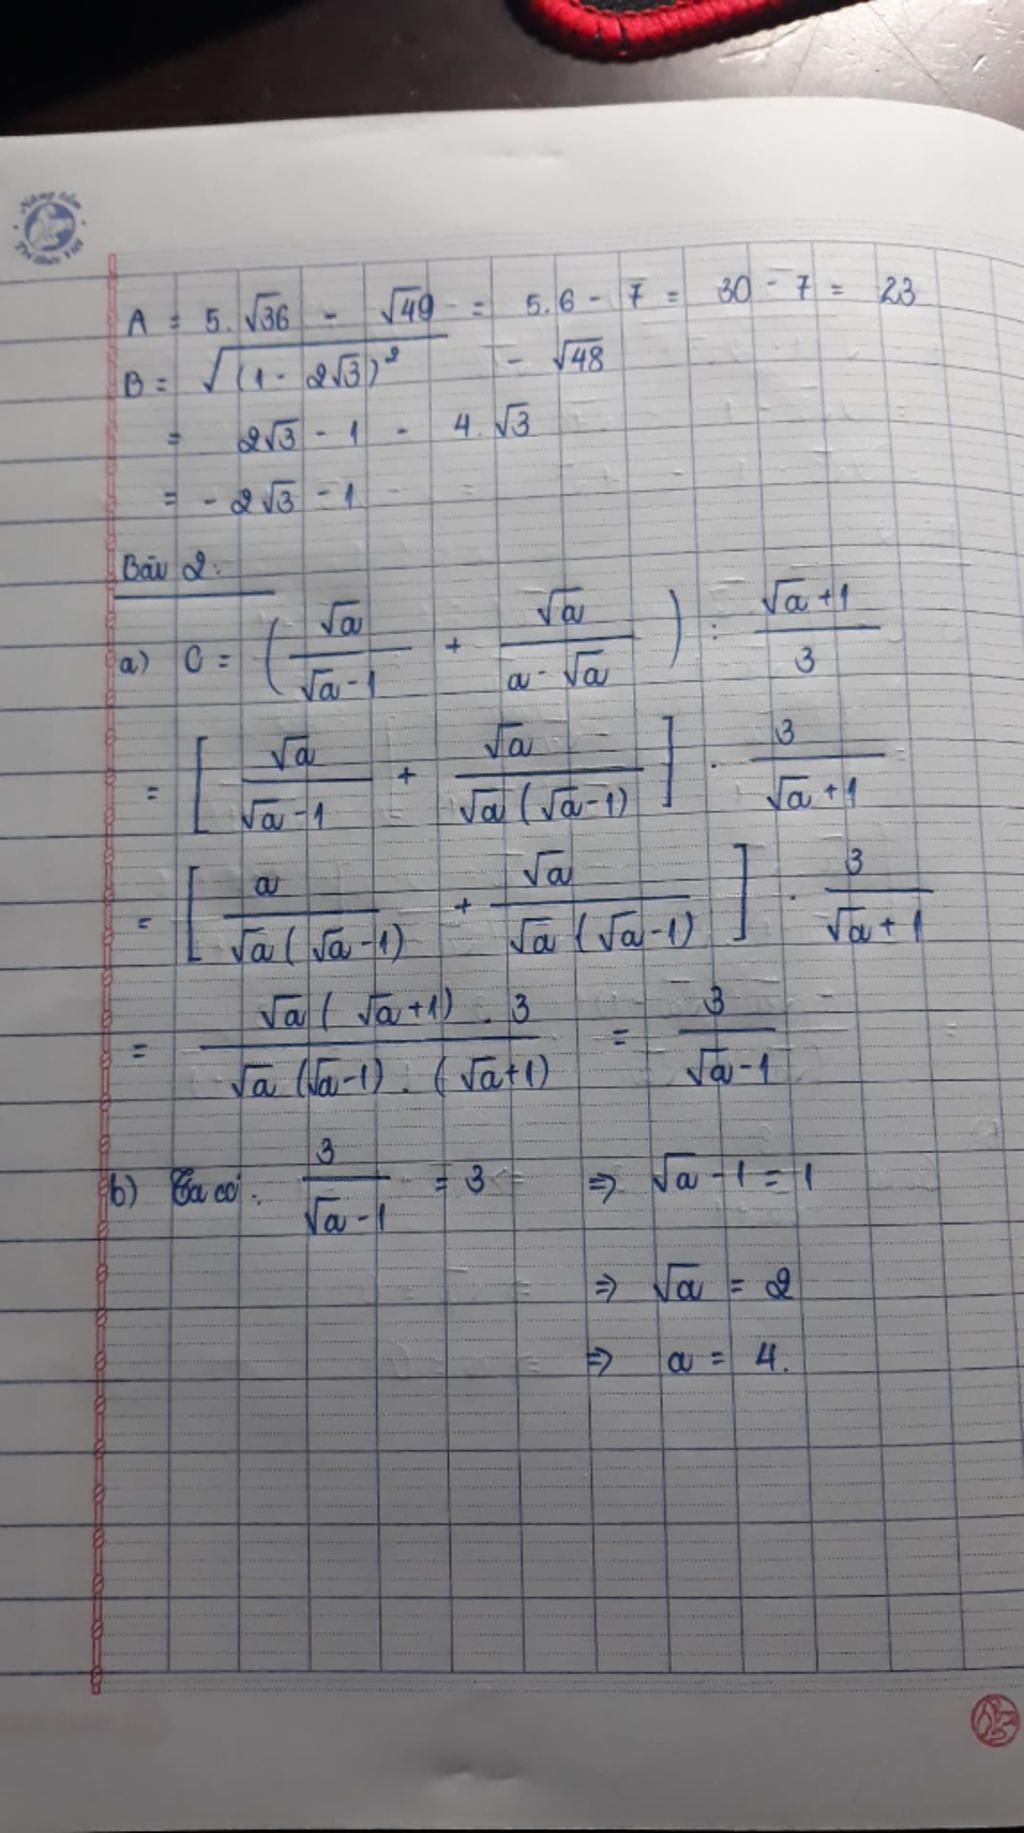 Nâng tầm
Tri thức Việt
A = 5.√36 - √49 = 5.6 - 7 = 30 - 7 = 23
B = √(1 - 2√3)² - √48
= 2√3 - 1 - 4.√3
= -2√3 - 1
Bài 2:
a) C = (√a/(√a - 1) + √a/(a - √a)) : (√a + 1)/3
= [√a/(√a - 1) + √a/(√a(√a - 1))] . 3/(√a + 1)
= [a/(√a(√a - 1)) + √a/(√a(√a - 1))] . 3/(√a + 1)
= (√a(√a + 1) . 3)/(√a(√a - 1) . (√a + 1)) = 3/(√a - 1)
b) Ta có: 3/(√a - 1) = 3 ⇒ √a - 1 = 1
⇒ √a = 2
⇒ a = 4.